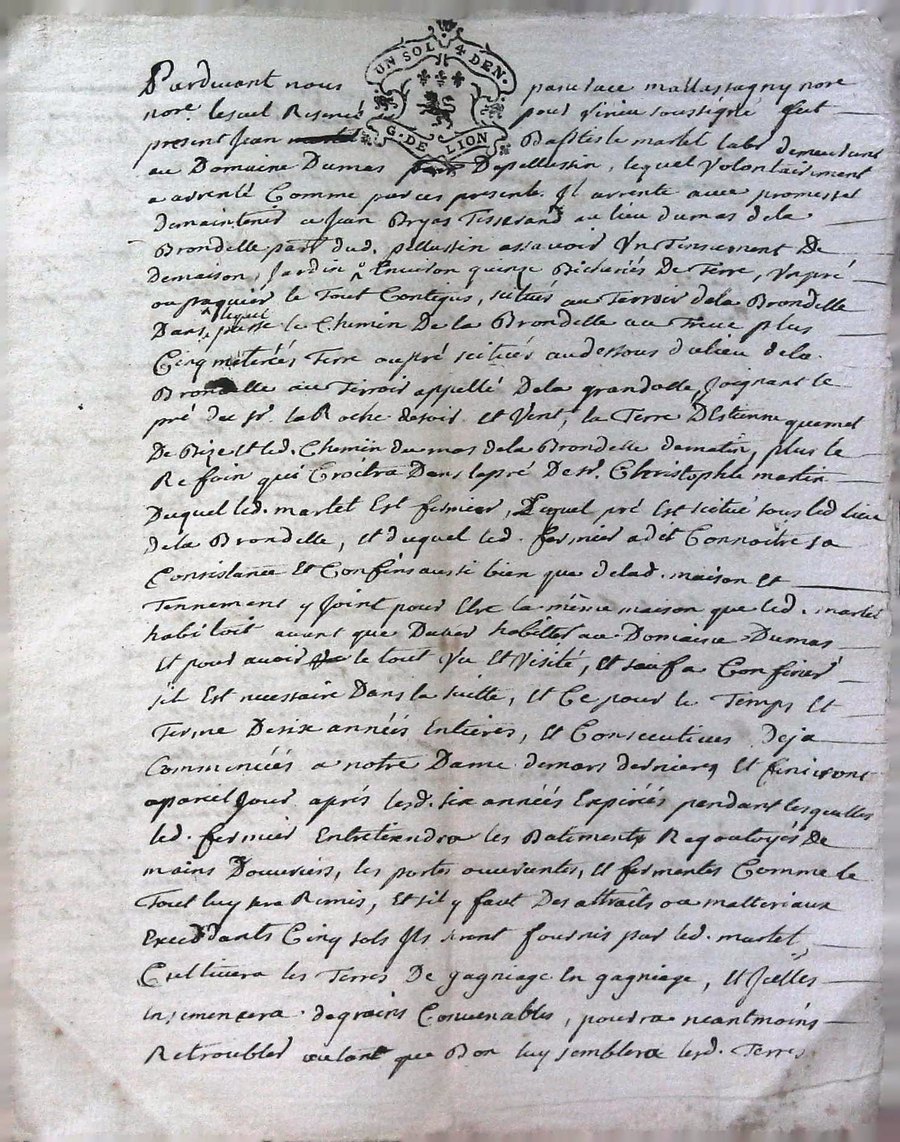 UN SOL 4 DEN.
G. DE LION
Pardevant nous pancrace mallassagny nore
nore. Royal Reservé pour Virieu soussigné fut
present Jean Baptiste martel labr demeurant
au Domaine Dumas Depellussin, lequel Volontairement
a arrenté Comme par ces presente Il arrente avec promesse
demaintenir a Jean Bryas Tisserand au lieu dumas dela
Brondelle parr dud. pellussin assavoir Un Tennement De
demaison, Jardin & Environ quinze Bicherées De Terre, Unpré
ou paquier le Tout Contigus, scitués au Terroir dela Brondelle
Dans lequel passe le Chemin De la Brondelle au plus
Cinq meterées Terre oupré scitués audessous dulieu dela
Brondelle au Terroir appellé Dela grandolle Joignant le
pré du sr. la Roche desoir et Vent, la Terre DEstienne quemel
De Bize et led. Chemin dumas dela Brondelle dematin, plus le
Refoin qui Croitra Dans lepré De sr. Christophle martin
Duquel led. martel Est fermier, Lequel pré Est scitué sous led lieu
dela Brondelle, et duquel led. fermier adit Connoitre sa
Consistance Et Confins aussi bien que delad. maison et
Tennement y Joint pour Etre la même maison que led. martel
habitoit avant que Daller habitter au Domaine Dumas
Et pour avoir le tout Vu Et Visité, et sauf a Confiner
sil Est necessaire Dans la suitte, et Ce pour le Temps et
Terme Desix années Entieres, et Consecutives Deja
Commencées a notre Dame demars derniere, et finiront
apareil Jour aprés lesd. six années Expirées pendant lesquelles
led. fermier Entretiendra les Batiments Regoutoyés De
mains Douvriers, les portes ouvrantes, et fermentes Comme le
Tout luy sera Remis, et sil y faut Des attraits ou materiaux
Excedants Cinq sols Ils seront fournis par led. martel,
Cultivera les Terres De gagniage En gagniage, et Icelles
Ensemencera degrains Convenables, pourra neantmoins
Retroubler autant que Bon luy semblera lesd. Terres